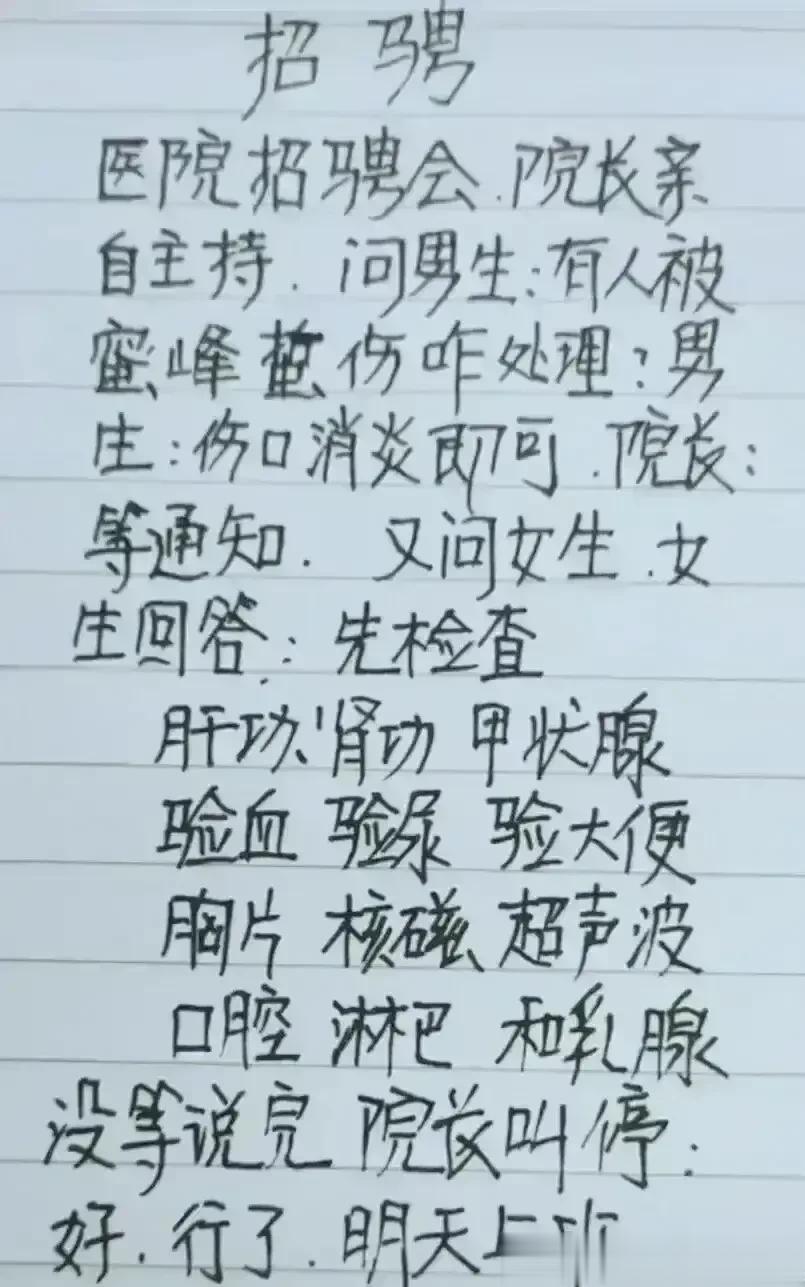 招聘
医院招聘会.院长亲
自主持.问男生:有人被
蜜峰蜇伤咋处理?男
生:伤口消炎即可.院长:
等通知.又问女生.女
生回答:先检查
肝功、肾功 甲状腺
验血 验尿 验大便
胸片 核磁 超声波
口腔 淋杷 和乳腺
没等说完 院长叫停:
好.行了.明天上班